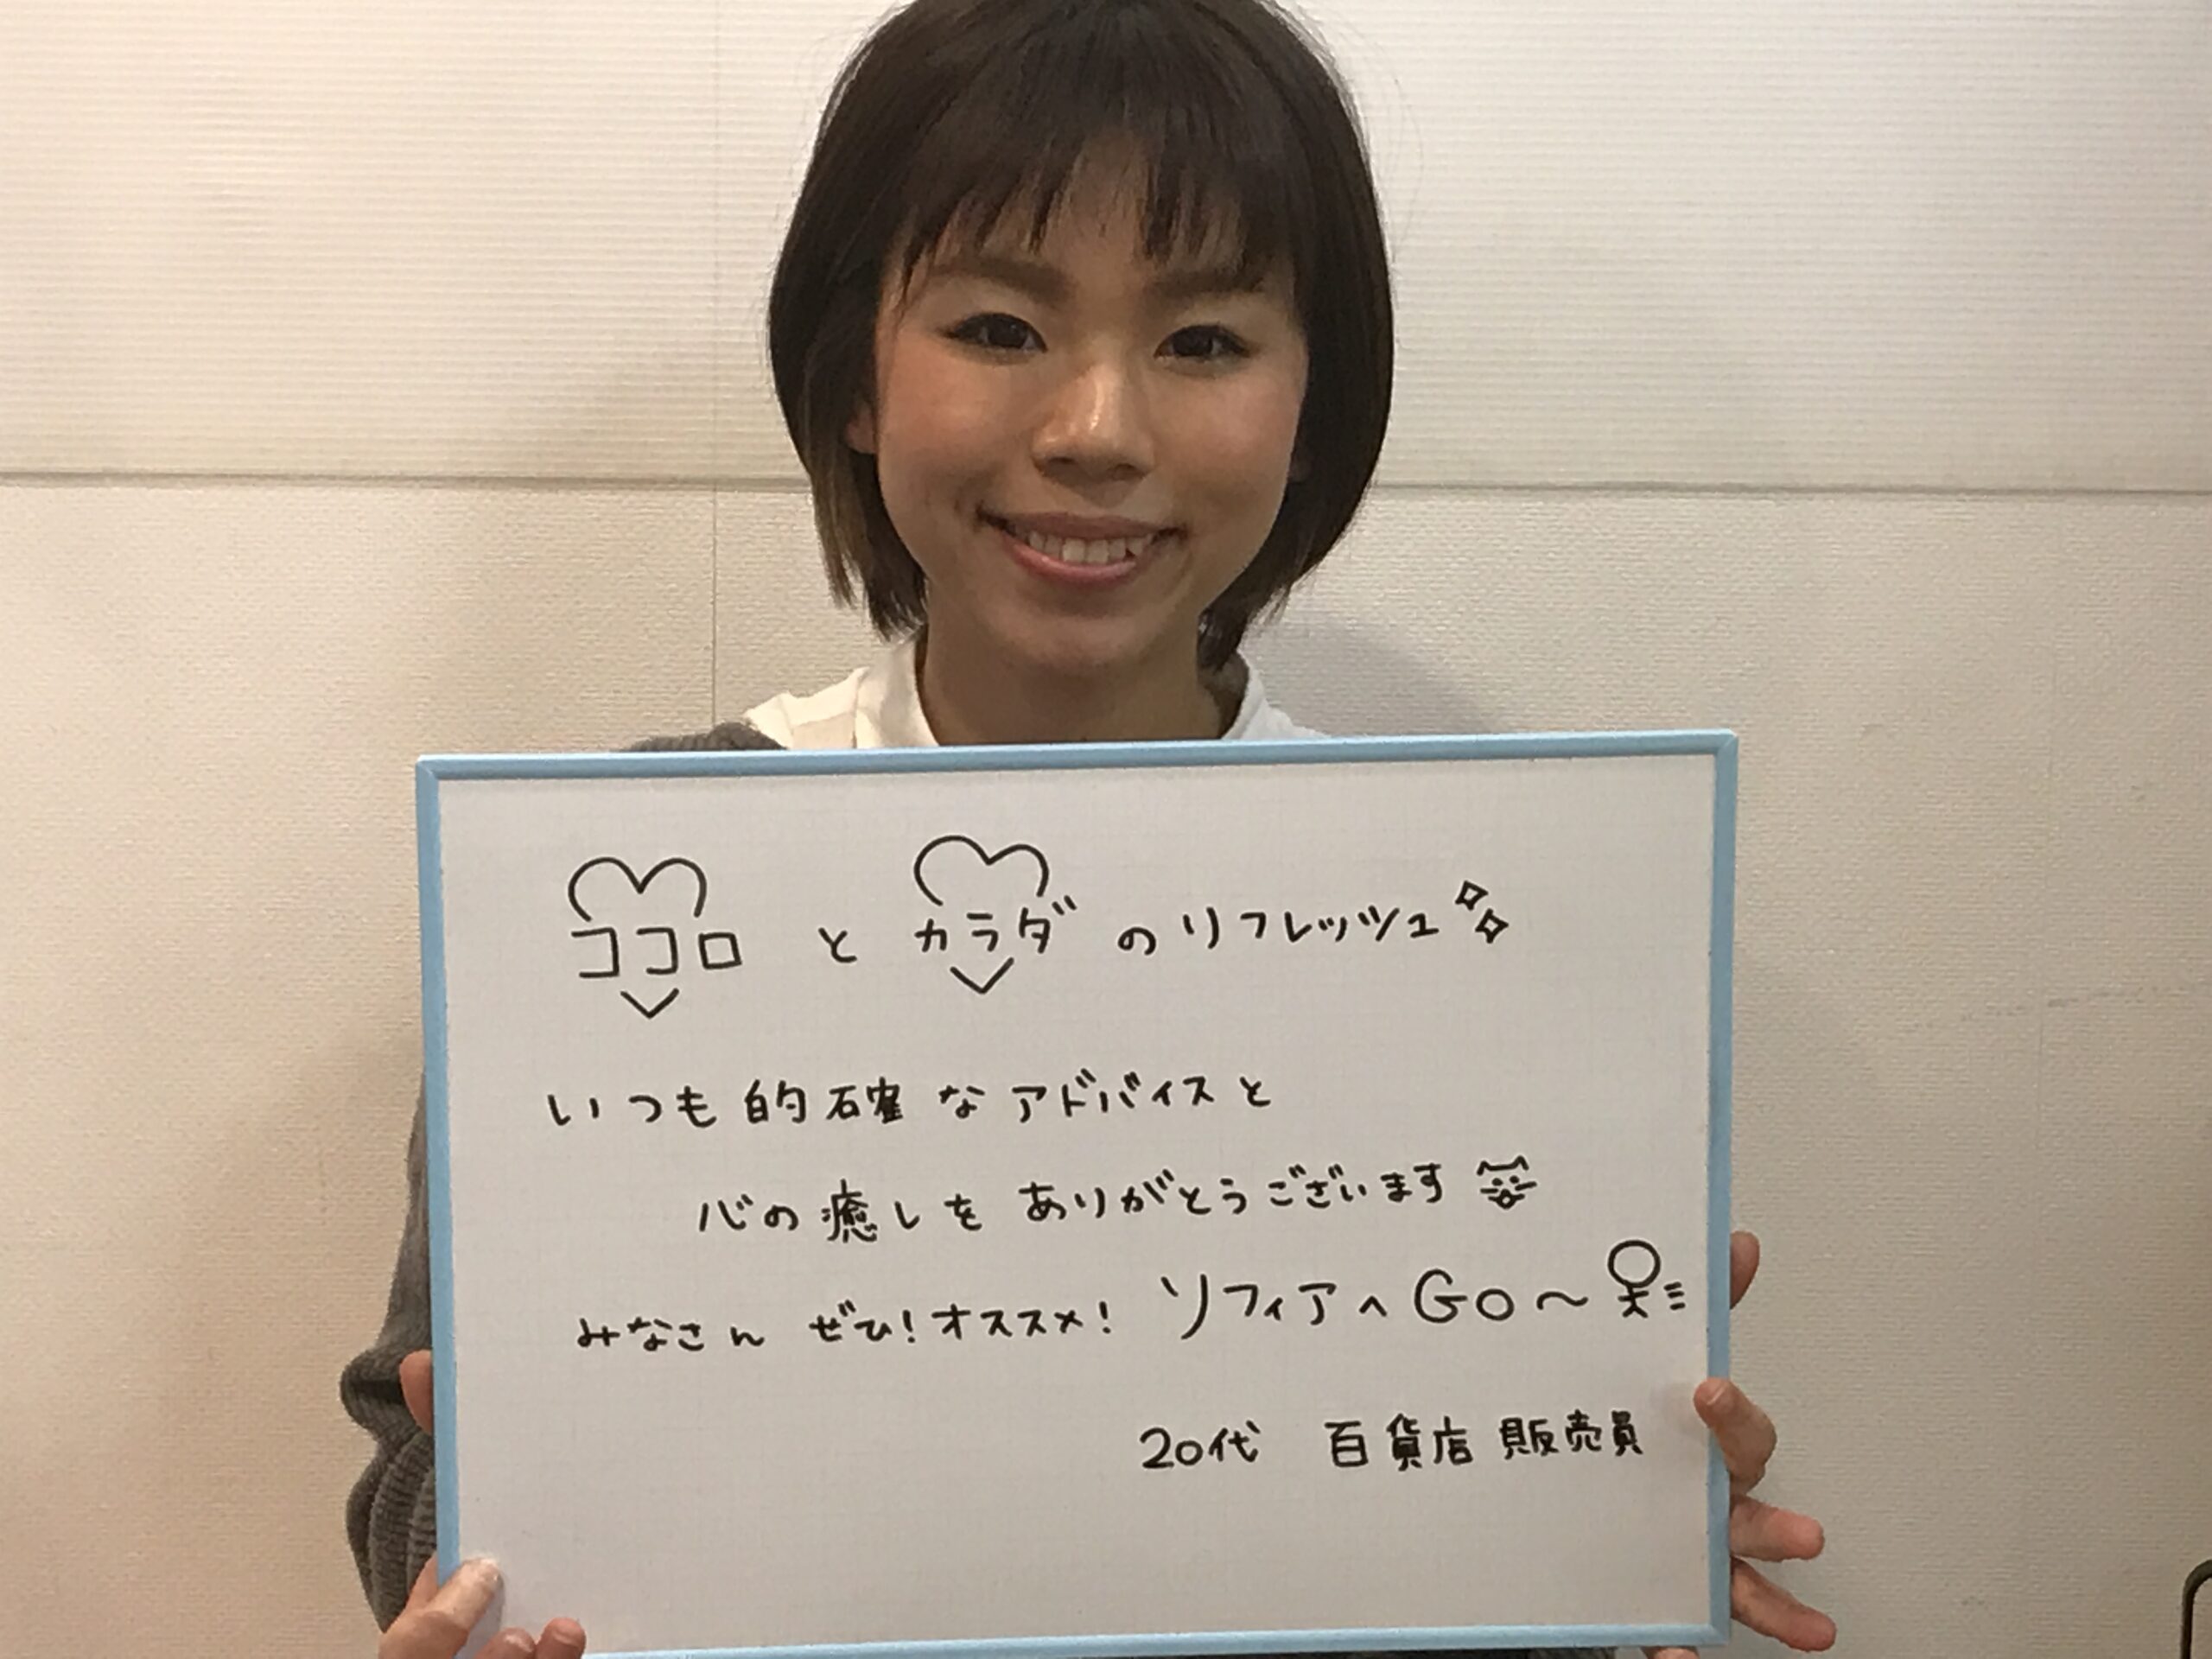 ココロ と カラダ のリフレッシュ
いつも的確なアドバイスと
心の癒しを ありがとうございます
みなさん ぜひ!オススメ! ソフィアへGO〜
20代 百貨店 販売員